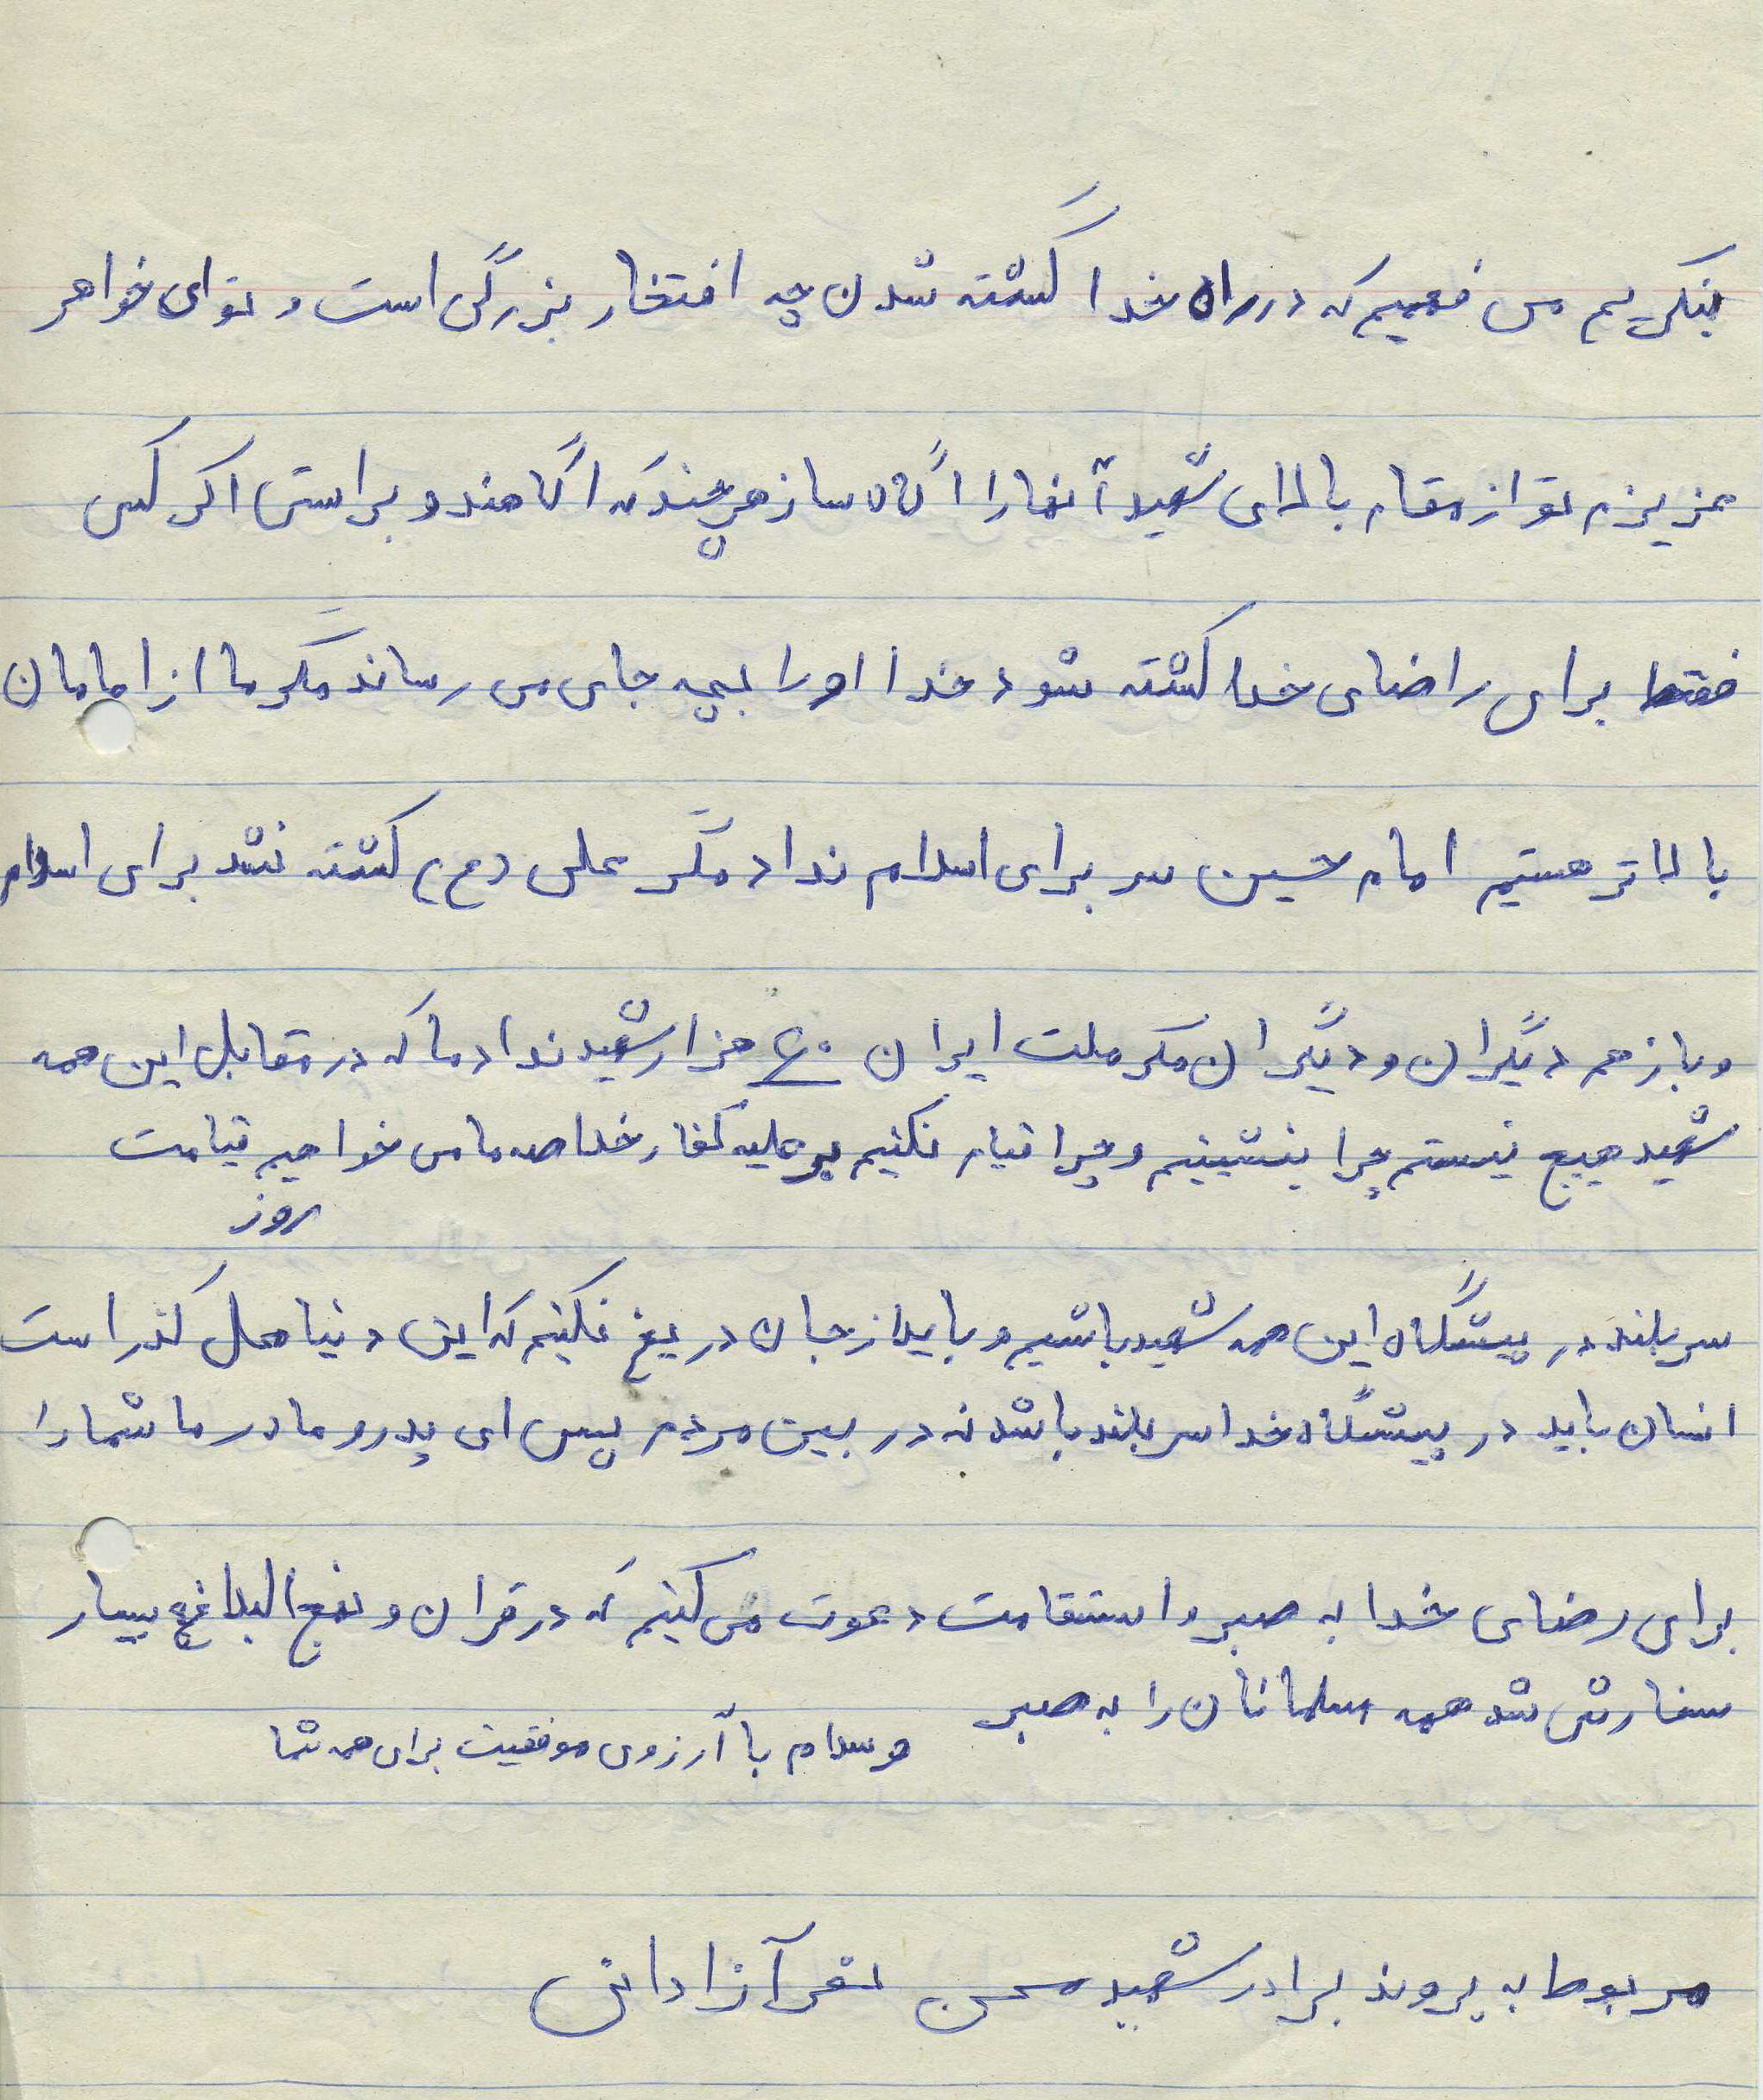 بنگریم می فهمیم که در راه خدا کشته شدن چه افتخار بزرگی است و توای خواهر
عزیزم تو از مقام بالای شهید آنها را آگاه ساز هرچند که آگاهند و براستی اگر کسی
فقط برای راضای خدا کشته شود خدا او را بچه جای می رساند مگر ما از امامان
بالاتر هستیم امام حسین سر برای اسلام نداد مگر علی (ع) کشته نشد برای اسلام
و باز هم دیگران و دیگران مگر ملت ایران ۶۰ هزار شهید نداد ما که در مقابل این همه
شهید هیچ نیستم چرا بنشینیم و چرا قیام نکنیم بر علیه کفار خلاصه ما می خواهیم قیامت
روز
سربلند در پیشگاه این همه شهید باشیم و باید از جان دریغ نکنیم که این دنیا محل گذر است
انسان باید در پیشگاه خدا سربلند باشد نه در بین مردم پس ای پدر و مادر ما شما را
برای رضای خدا به صبر و استقامت دعوت می کنیم که در قران و نهج البلاغه بسیار
سفارش شد همه مسلمانان را به صبر
و سلام با آرزوی موفقیت برای همه شما
مربوط به پروند برادر شهید محسن تقی آزادانی